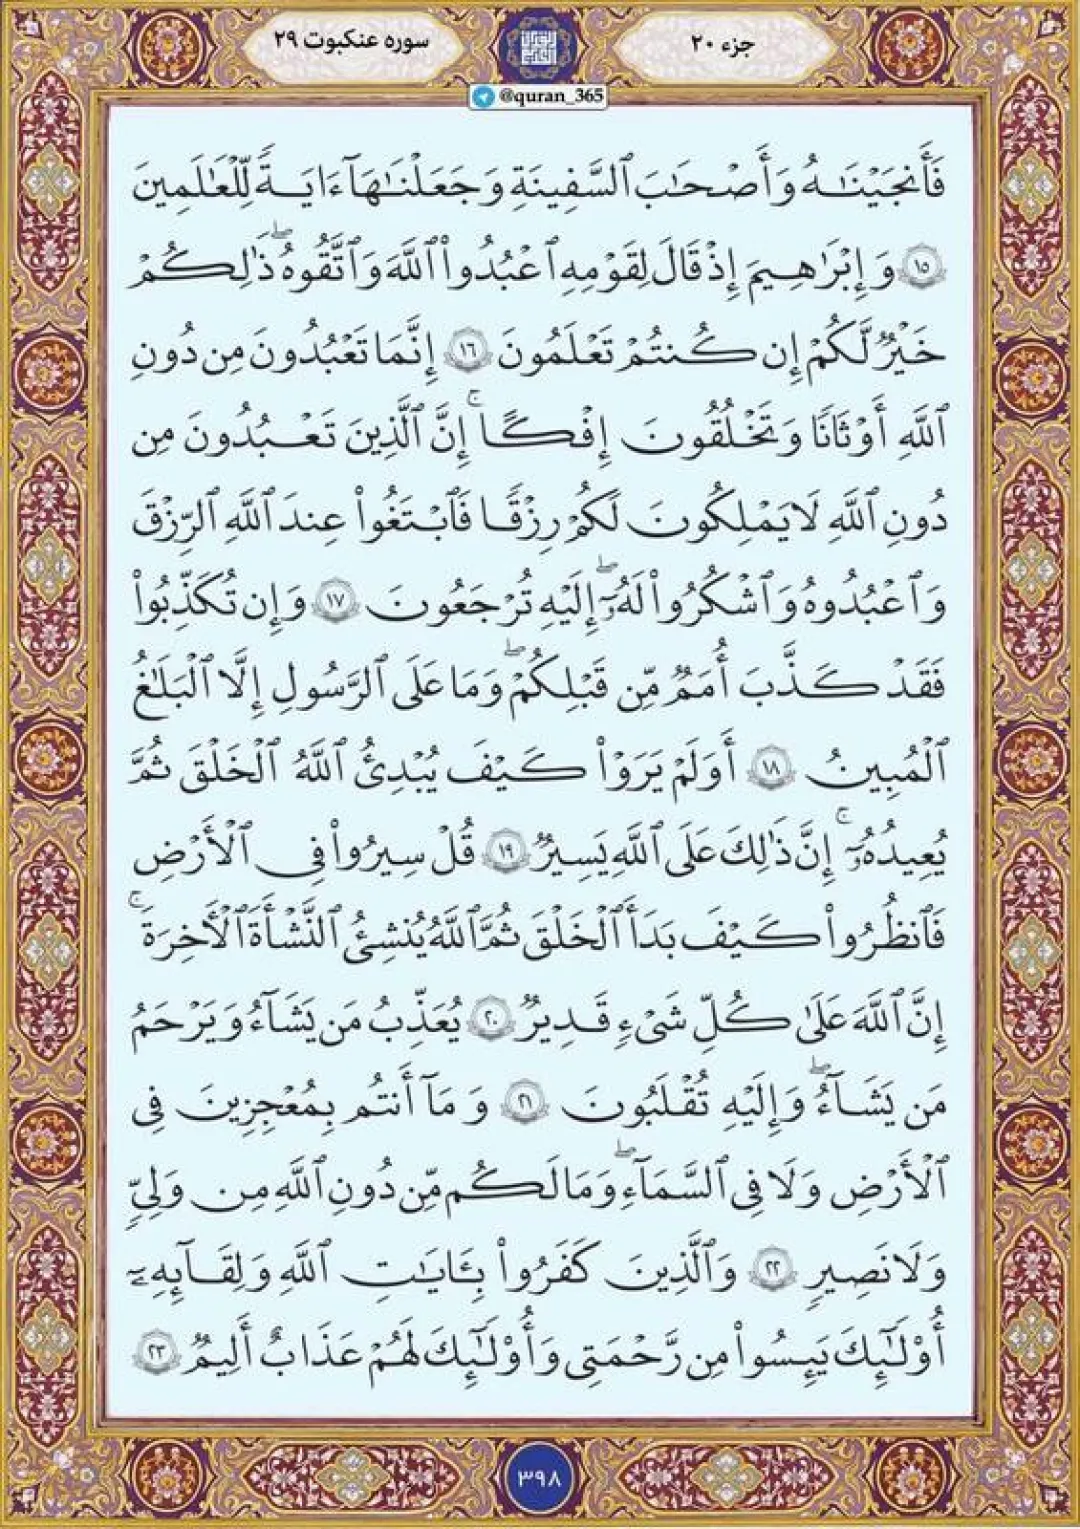 جزء ۲۰
سوره عنکبوت ۲۹
@quran_365
فَأَنجَيْنَـٰهُ وَأَصْحَـٰبَ ٱلسَّفِينَةِ وَجَعَلْنَـٰهَآ ءَايَةً لِّلْعَـٰلَمِينَ
﴿١٥﴾ وَإِبْرَٰهِيمَ إِذْ قَالَ لِقَوْمِهِ ٱعْبُدُوا۟ ٱللَّهَ وَٱتَّقُوهُ ۖ ذَٰلِكُمْ
خَيْرٌ لَّكُمْ إِن كُنتُمْ تَعْلَمُونَ ﴿١٦﴾ إِنَّمَا تَعْبُدُونَ مِن دُونِ
ٱللَّهِ أَوْثَـٰنًا وَتَخْلُقُونَ إِفْكًا ۚ إِنَّ ٱلَّذِينَ تَعْبُدُونَ مِن
دُونِ ٱللَّهِ لَا يَمْلِكُونَ لَكُمْ رِزْقًا فَٱبْتَغُوا۟ عِندَ ٱللَّهِ ٱلرِّزْقَ
وَٱعْبُدُوهُ وَٱشْكُرُوا۟ لَهُۥٓ ۖ إِلَيْهِ تُرْجَعُونَ ﴿١٧﴾ وَإِن تُكَذِّبُوا۟
فَقَدْ كَذَّبَ أُمَمٌ مِّن قَبْلِكُمْ ۖ وَمَا عَلَى ٱلرَّسُولِ إِلَّا ٱلْبَلَـٰغُ
ٱلْمُبِينُ ﴿١٨﴾ أَوَلَمْ يَرَوْا۟ كَيْفَ يُبْدِئُ ٱللَّهُ ٱلْخَلْقَ ثُمَّ
يُعِيدُهُۥٓ ۚ إِنَّ ذَٰلِكَ عَلَى ٱللَّهِ يَسِيرٌ ﴿١٩﴾ قُلْ سِيرُوا۟ فِى ٱلْأَرْضِ
فَٱنظُرُوا۟ كَيْفَ بَدَأَ ٱلْخَلْقَ ثُمَّ ٱللَّهُ يُنشِئُ ٱلنَّشْأَةَ ٱلْـَٔاخِرَةَ ۚ
إِنَّ ٱللَّهَ عَلَىٰ كُلِّ شَىْءٍ قَدِيرٌ ﴿٢٠﴾ يُعَذِّبُ مَن يَشَآءُ وَيَرْحَمُ
مَن يَشَآءُ ۖ وَإِلَيْهِ تُقْلَبُونَ ﴿٢١﴾ وَمَآ أَنتُم بِمُعْجِزِينَ فِى
ٱلْأَرْضِ وَلَا فِى ٱلسَّمَآءِ ۖ وَمَا لَكُم مِّن دُونِ ٱللَّهِ مِن وَلِىٍّ
وَلَا نَصِيرٍ ﴿٢٢﴾ وَٱلَّذِينَ كَفَرُوا۟ بِـَٔايَـٰتِ ٱللَّهِ وَلِقَآئِهِۦٓ
أُو۟لَـٰٓئِكَ يَئِسُوا۟ مِن رَّحْمَتِى وَأُو۟لَـٰٓئِكَ لَهُمْ عَذَابٌ أَلِيمٌ ﴿٢٣﴾
۳۹۸